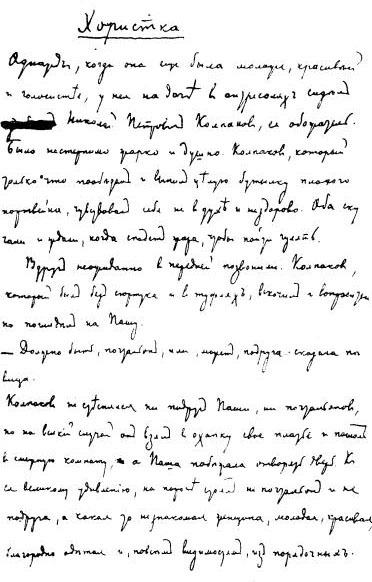 Хористка
Однажды, когда она еще была моложе, красивѣй
и голосистѣе, у нея на дачѣ в антресоляхъ сидѣл
Николай Петрович Колпаков, ея обожатель.
Было нестерпимо жарко и душно. Колпаков, который
только что пообѣдал и выпил цѣлую бутылку плохого
портвейна, чувствовал себя не в духѣ и нездорово. Оба ску
чали и ждали, когда спадет жара, чтобы пойти гулять.
Вдруг неожиданно в передней позвонили. Колпаков,
который был без сюртука и в туфлях, вскочил и вопроситель
но поглядѣл на Пашу.
— Должно быть, почтальон, или, может, подруга - сказала пѣ
вица.
Колпаков не стѣснялся ни подруг Паши, ни почтальонов,
но на всякий случай он взял в охапку свое платье и пошел
в смежную комнату, а Паша побѣжала отворять дверь. К
ея великому удивлению, на порогѣ стоял не почтальон и не
подруга, а какая то незнакомая женщина, молодая, красивая,
благородно одѣтая и, по всѣм видимостям, из порядочных.